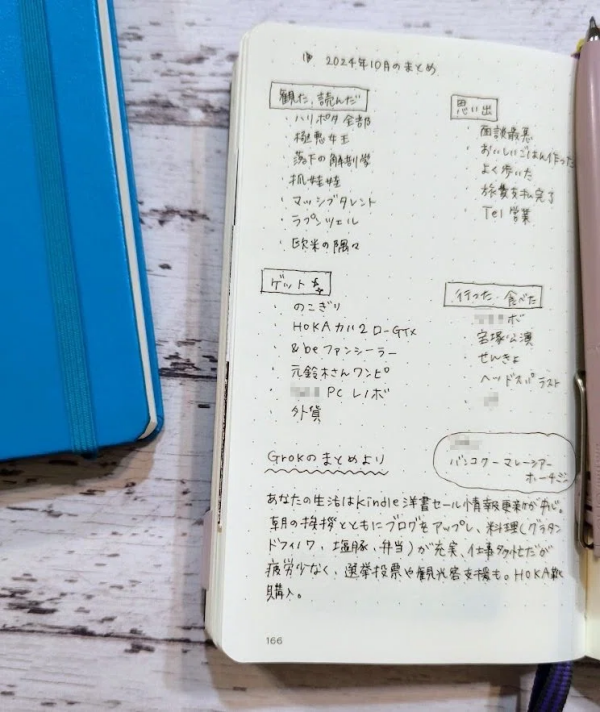 2024年10月のまとめ
観た、読んだ
・ハリポタ全部
・極悪女王
・落下の解剖学
・机娃娃
・マッシブタレント
・ラプンツェル
・欧米の隅々
思い出
面談最悪
・おいしいごはん作った
・よく歩いた
・旅費支払完了
・Tel営業
ゲット
・のこぎり
・HOKA カハ2ローGTX
・&be ファンシーラー
・元鈴木さんワンピ
・PC レノボ
・外貨
行った・食べた
ボ
宝塚公演
せんきょ
・ヘッドスパ ラスト
バンコクーマレーシアー
ホーチミン
Grokのまとめより
あなたの生活はKindle洋書セール情報更新が軸。
朝の挨拶とともにブログをアップし、料理(グラタン
ドフィノワ、塩豚、弁当)が充実、仕事多忙だが
疲労少なく、選挙投票や観光客支援も。HOKA靴
購入。
166